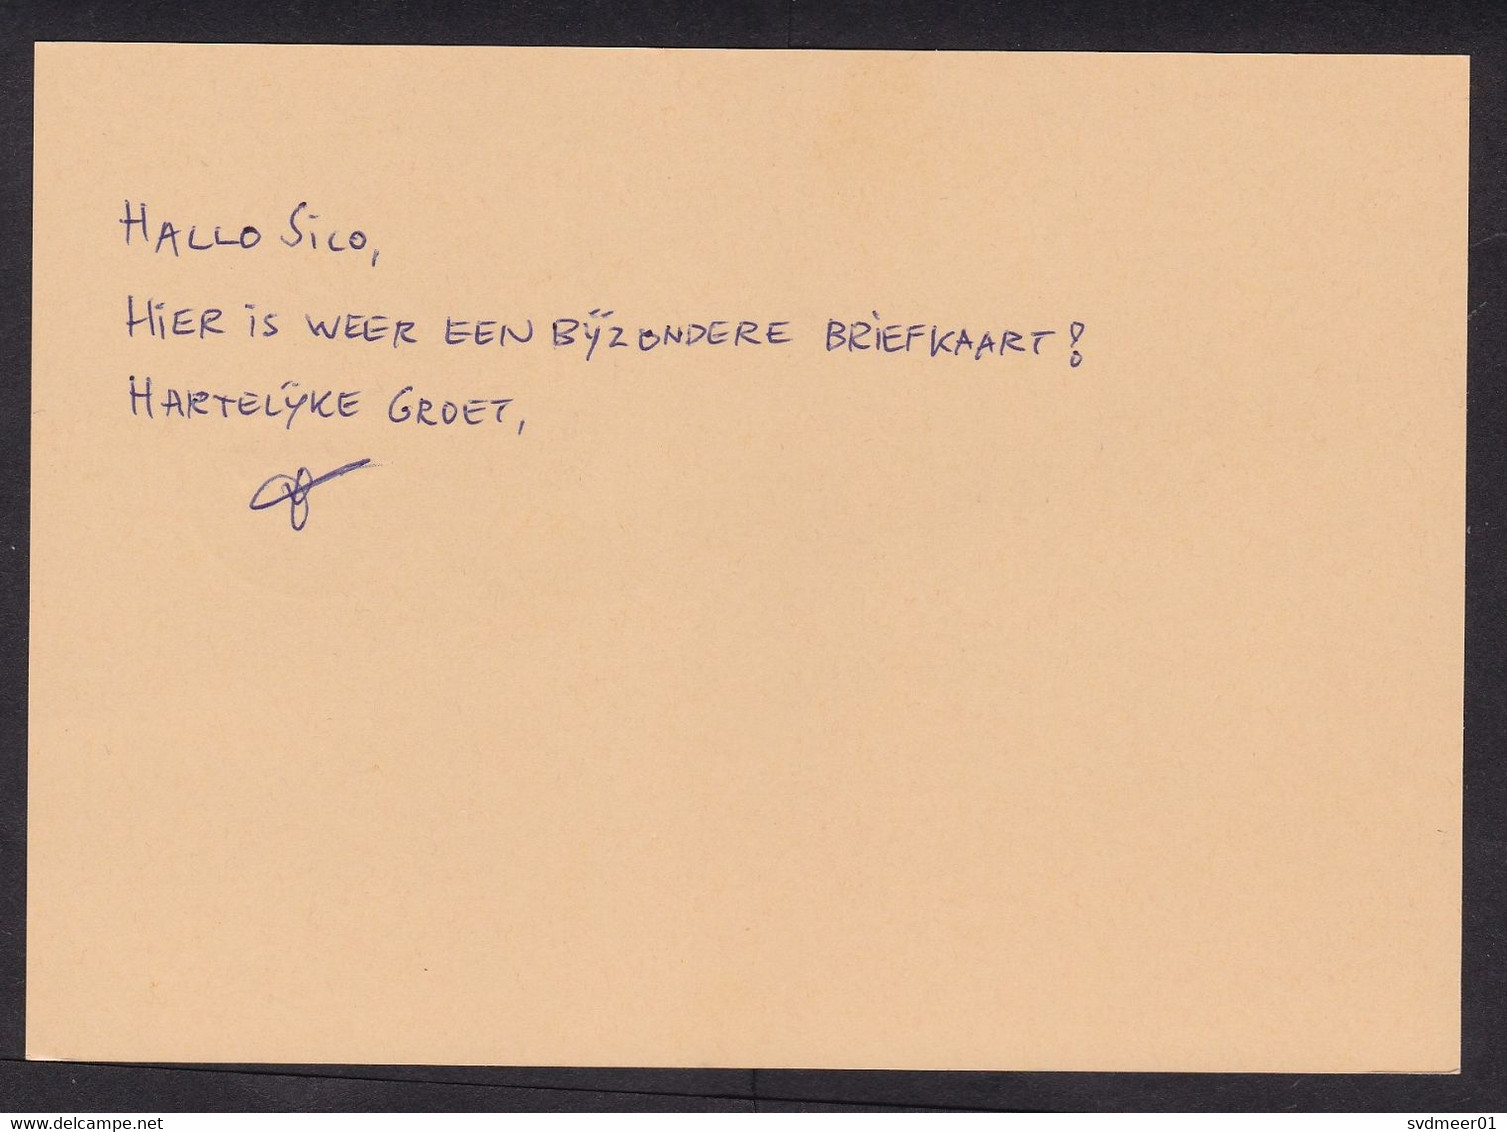 HALLO SiCO,
HiER iS WEER EEN BŸZONDERE BRiEFKAART!
HARTELŸKE GROET,
www.delcampe.net
svdmeer01